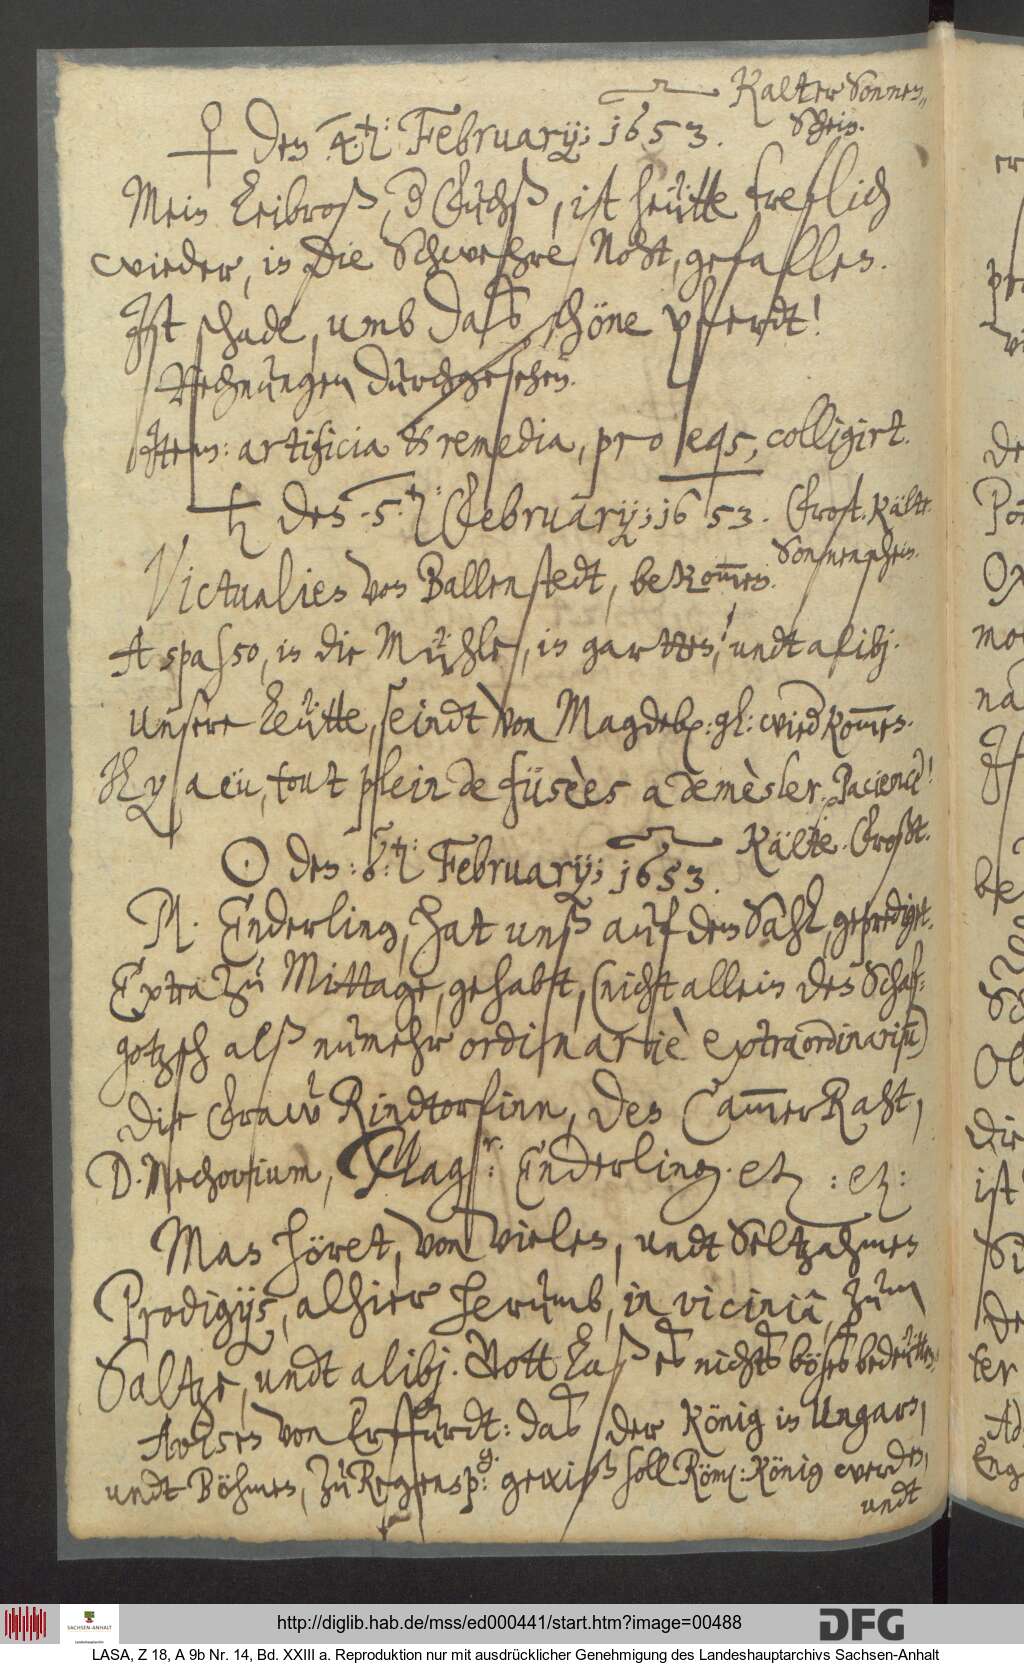 Kalter Sonnen„
♀ den 4.ten: February; 1653. Schein.
Mein Leibroß, d Fuchß, ist heütte trefflich
wieder, in die Schwehre Noht, gefallen.
Ist schade, umb daß schöne pferdt!
Rechnungen durchgesehen.
Item: artificia & remedia, pro eqs, colligirt.
♄ den .5.ten: February; 1653. Frost. Kälte.
Sonnenschein.
Victualien von Ballenstedt, bekommen.
A spasso, in die Mühle, in garten, undt alibj.
Unsere Leütte, seindt von Magdeb: gl: wied kommen.
Il y a eü, tout plein de füsèes a demèsler. Pacience!
☉ den :6.ten: February; 1653. Kälte. Frost.
M. Enderling, hat unß auf den Sahl, geprediget.
Extra zu Mittage, gehabt, (nicht allein den Schaf=
gotzsch alß nunmehr ordinariè extraordinarium)
die Fraw Rindtorfinn, den CammerRaht,
D. Mechovium, Magr: Enderling. etc : etc:
Man höret, von vielen, undt Seltzahmen
Prodigijs, alhier herumb, in viciniâ, zum
Saltze, undt alibj. Gott Laß es nichts böses bedeütten,
Avisen von Erffurdt: daß der König in Ungarn,
undt Böhmen, zu Regensp:g. gewiß soll Röm: König werden,
undt
http://diglib.hab.de/mss/ed000441/start.htm?image=00488
DFG
SACHSEN-ANHALT
LASA, Z 18, A 9b Nr. 14, Bd. XXIII a. Reproduktion nur mit ausdrücklicher Genehmigung des Landeshauptarchivs Sachsen-Anhalt